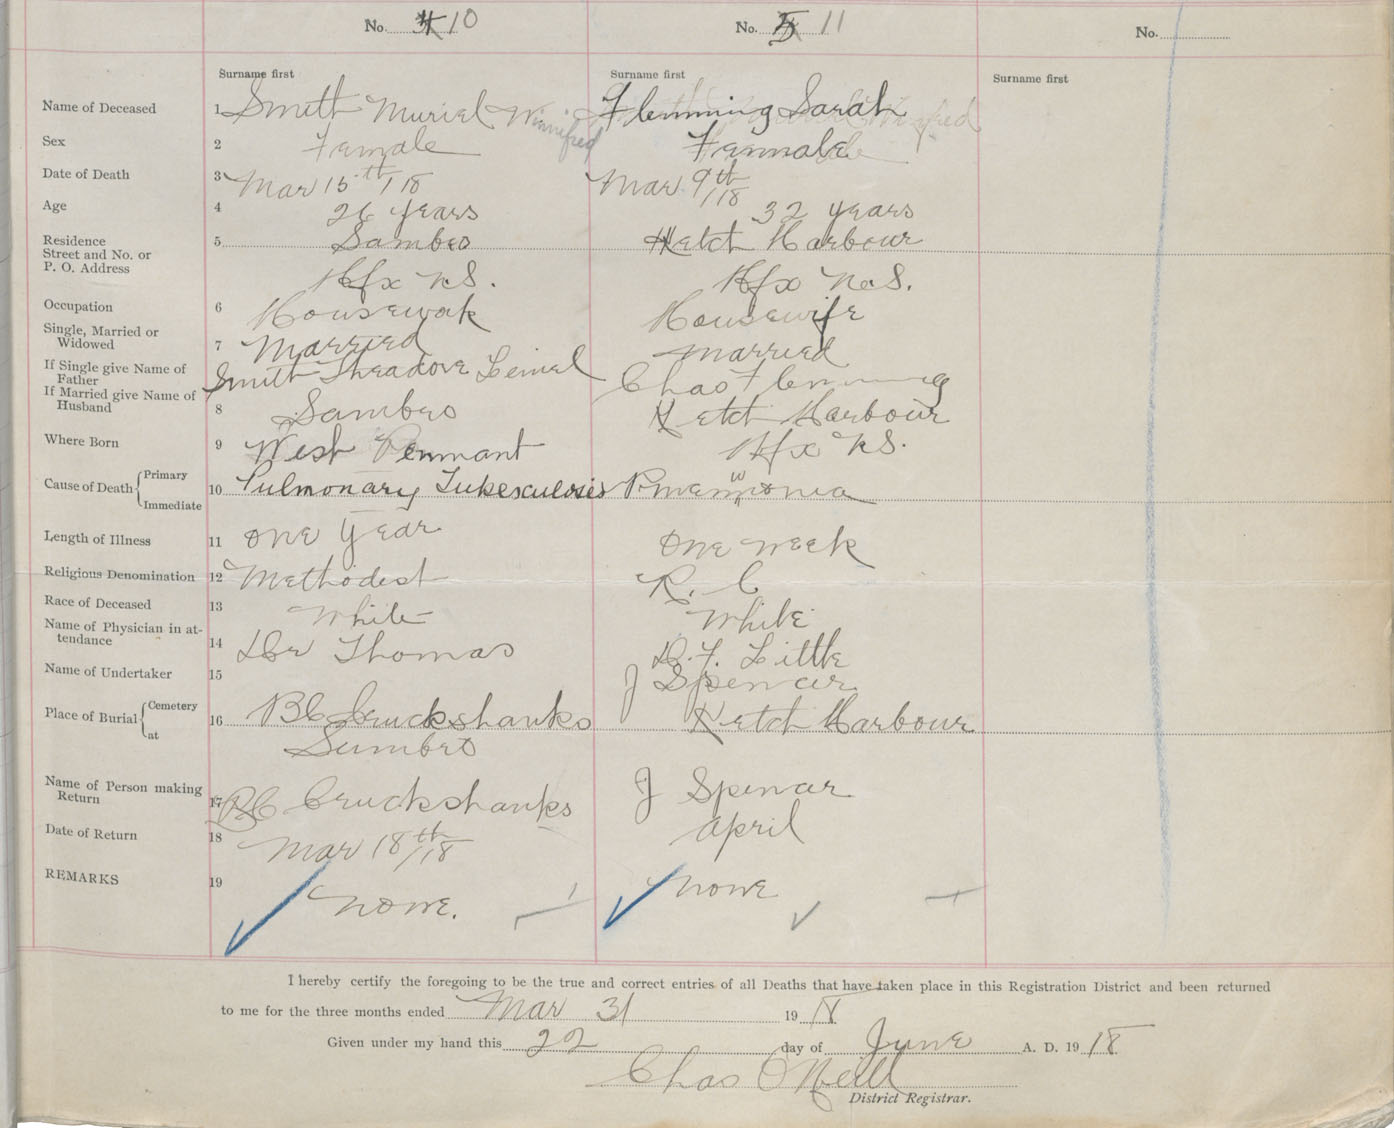 No. 10 No. 11 No.
Surname first Surname first Surname first
Name of Deceased 1 Smith Muriel Winnifred Flemming Sarah
Sex 2 Female Female
Date of Death 3 Mar 15th/18 Mar 9th/18
Age 4 26 years 32 years
Residence 5 Sambro Ketch Harbour
Street and No. or
P. O. Address Hfx N S. Hfx N. S.
Occupation 6 Housewok Housewife
Single, Married or
Widowed 7 Married Married
If Single give Name of
Father Smith Theadore Chas Flemming
If Married give Name of
Husband 8 Sambro Ketch Harbour
Where Born 9 West Pennant Hfx N S.
Cause of Death Primary
Immediate 10 Pulmonary Tukesculosis
Length of Illness 11 one year One week
Religious Denomination 12 Methodest R. C
Race of Deceased 13 White White
Name of Physician in at-
tendance 14 Thomas Little
Name of Undertaker 15 J Spencer
Place of Burial Cemetery
at 16 B C Cruckshanks Ketch Harbour
Sumbro
Name of Person making
Return 17 B C Cruckshanks J Spencar
Date of Return 18 Mar 18th/18 April
REMARKS 19 None. None
I hereby certify the foregoing to be the true and correct entries of all Deaths that have taken place in this Registration District and been returned
to me for the three months ended Mar 31 1918
Given under my hand this 22 day of June A. D. 1918
Chas O'Neill
District Registrar.